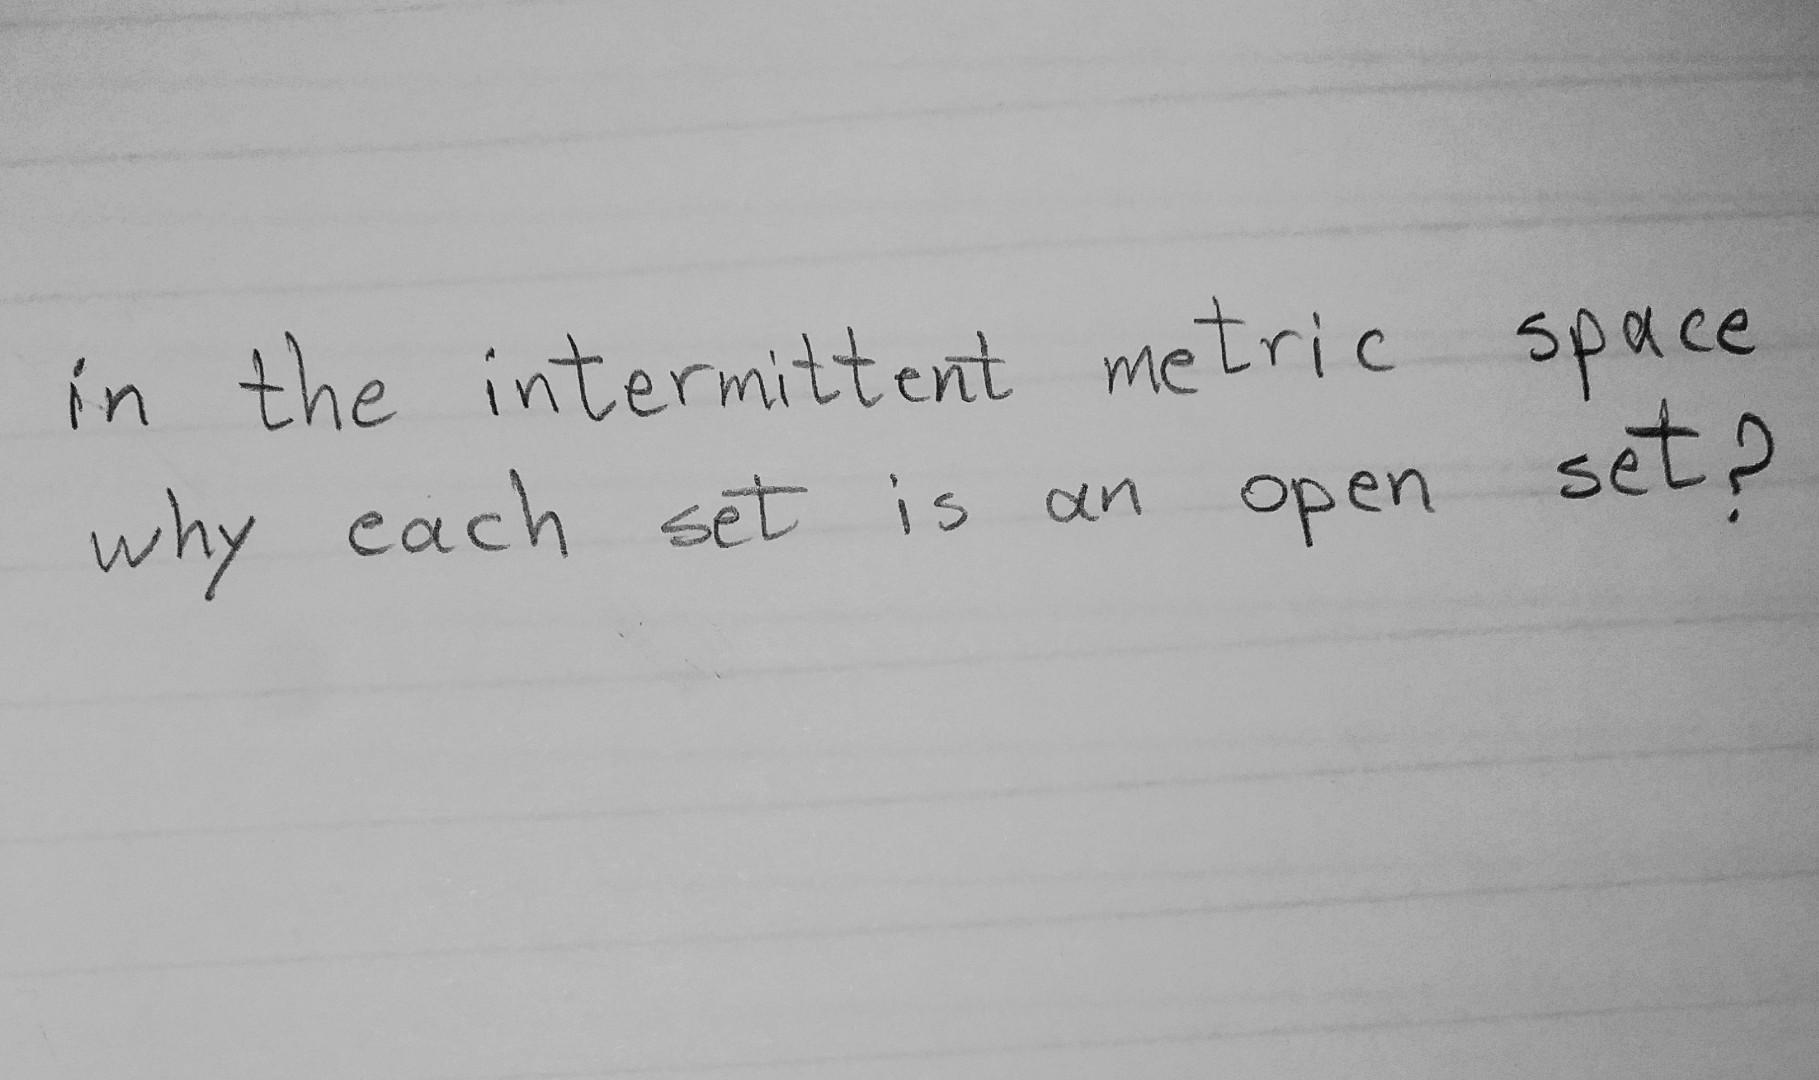 in the intermittent metric space
why each set is an open set?